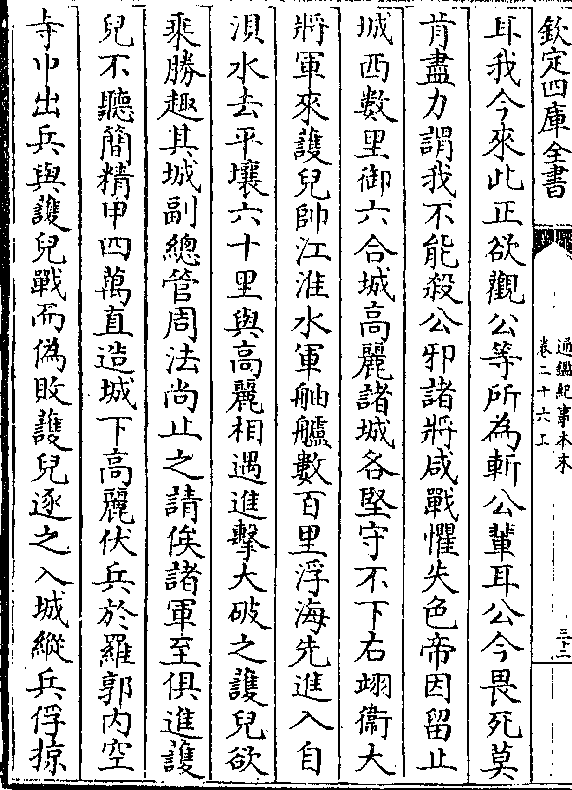 欽定四庫全書
通鑑紀事本末
卷二十六上
三十二
耳我今來此正欲觀公等所為斬公輩耳公今畏死莫
肯盡力謂我不能殺公邪諸將咸戰懼失色帝因留止
城西數里御六合城高麗諸城各堅守不下右翊衞大
將軍來護兒帥江淮水軍舳艫數百里浮海先進入自
浿水去平壤六十里與高麗相遇進擊大破之護兒欲
乘勝趣其城副總管周法尚止之請俟諸軍至俱進護
兒不聽簡精甲四萬直造城下高麗伏兵於羅郭内空
寺中出兵與護兒戰而偽敗護兒逐之入城縱兵俘掠